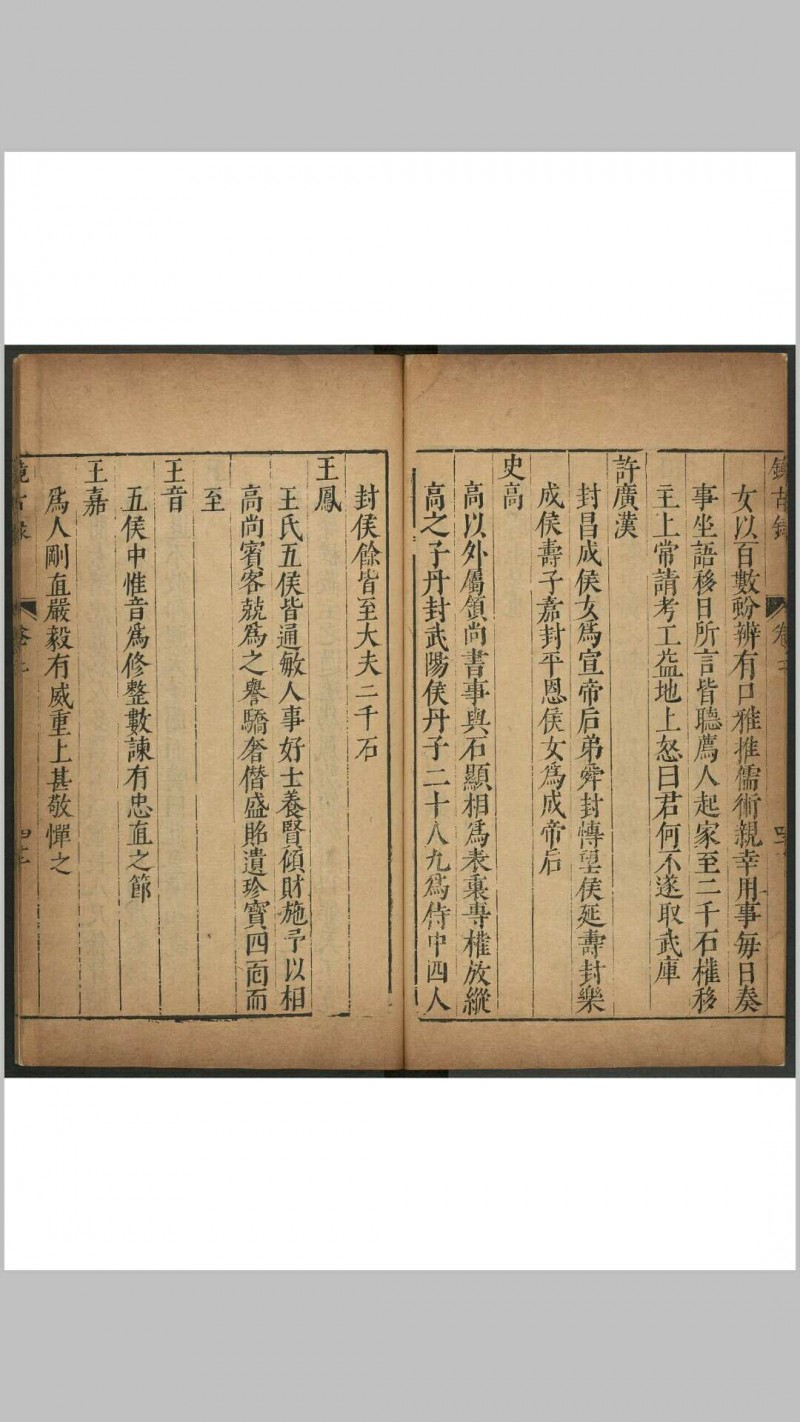 鏡古錄 卷七
女以百數蚡辨有口雅推儒術親幸用事每日奏
事坐語移日所言皆聽薦人起家至二千石權移
主上常請考工益地上怒曰君何不遂取武庫
許廣漢
封昌成侯女爲宣帝后弟舜封愽望侯延壽封樂
成侯壽子嘉封平恩侯女爲成帝后
史高
高以外屬領尚書事與石顯相爲表裏專權放縱
高之子丹封武陽侯丹子二十八九爲侍中四人
封侯餘皆至大夫二千石
王鳳
王氏五侯皆通敏人事好士養賢傾財施予以相
高尚賓客兢爲之譽驕奢僭盛賂遺珍寶四面而
至
王音
五侯中惟音爲修整數諫有忠直之節
王嘉
爲人剛直嚴毅有威重上甚敬憚之
鏡古錄 卷七